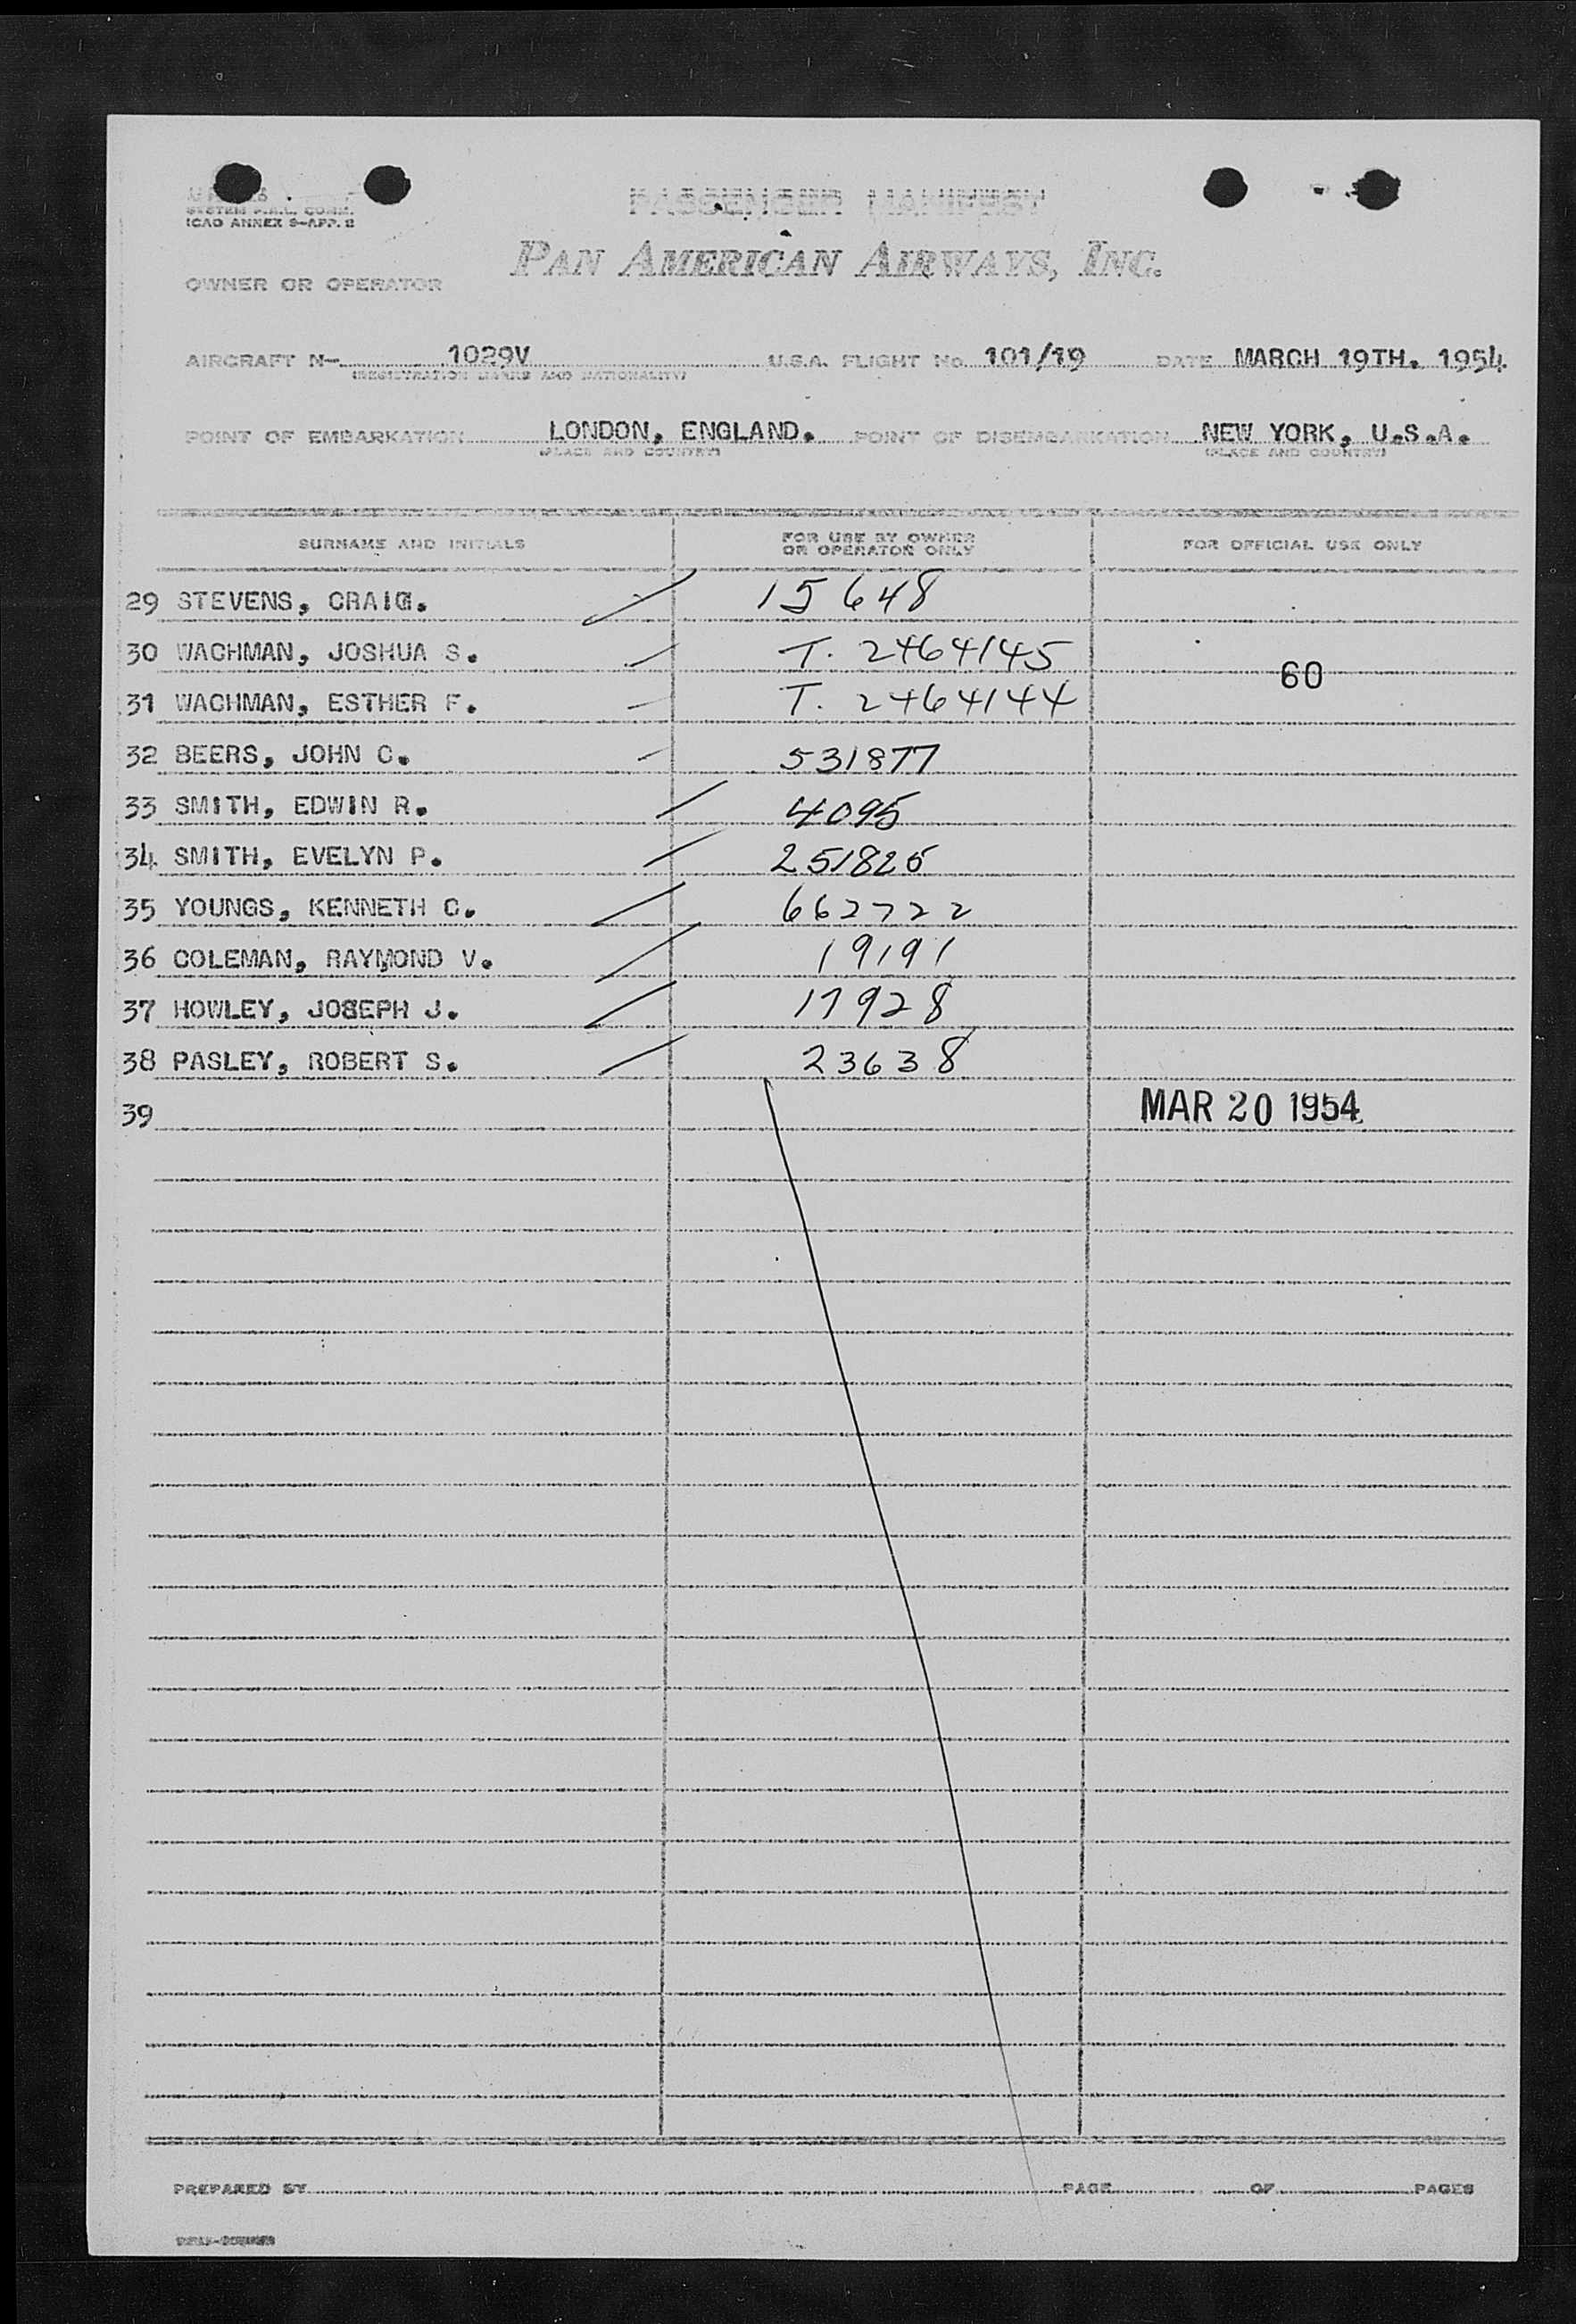 SYSTEM P.A.L. COMM.
ICAO ANNEX 9-APP. 2
PASSENGER MANIFEST
PAN AMERICAN AIRWAYS, INC.
OWNER OR OPERATOR
AIRCRAFT N- 1029V U.S.A. FLIGHT No. 101/19 DATE MARCH 19TH. 1954
(REGISTRATION MARKS AND NATIONALITY)
POINT OF EMBARKATION LONDON, ENGLAND. POINT OF DISEMBARKATION NEW YORK, U.S.A.
(PLACE AND COUNTRY) (PLACE AND COUNTRY)
SURNAME AND INITIALS FOR USE BY OWNER OR OPERATOR ONLY FOR OFFICIAL USE ONLY
29 STEVENS, CRAIG. 15648
30 WACHMAN, JOSHUA S. T. 2464145
60
31 WACHMAN, ESTHER F. T. 2464144
32 BEERS, JOHN C. 531877
33 SMITH, EDWIN R. 4095
34 SMITH, EVELYN P. 251825
35 YOUNGS, KENNETH C. 662722
36 COLEMAN, RAYMOND V. 19191
37 HOWLEY, JOSEPH J. 17928
38 PASLEY, ROBERT S. 23638
39 MAR 20 1954
PREPARED BY PAGE OF PAGES